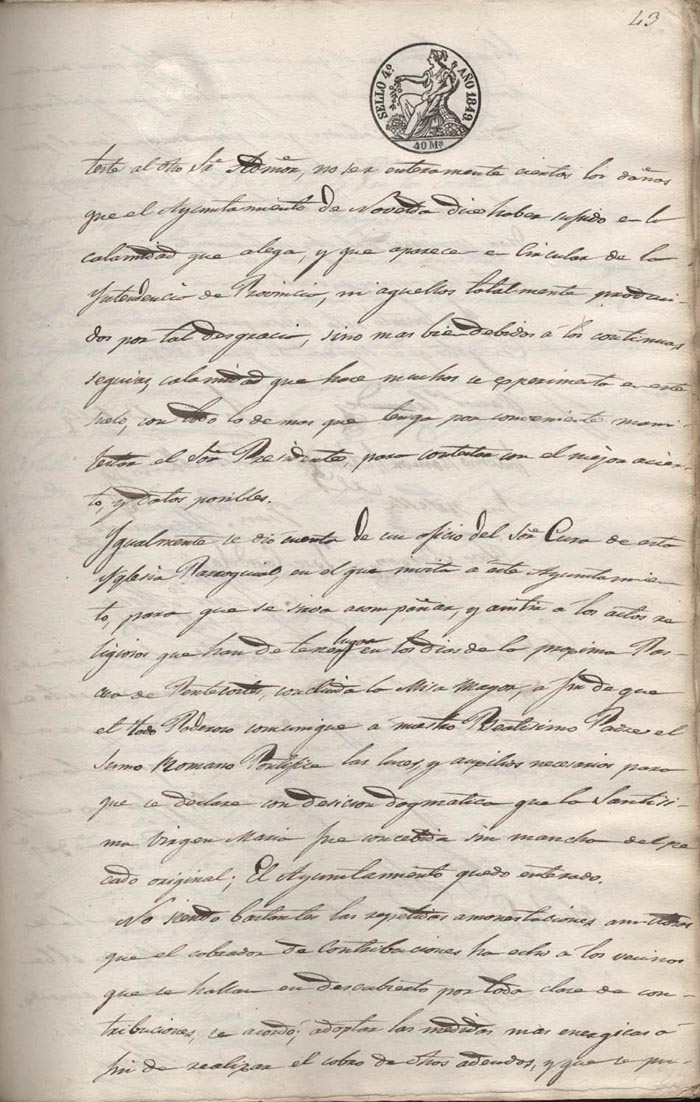 43
SELLO 4º AÑO 1849
40 Ms
teste al dho Sr Admor, no ser enteramente ciertos los daños
que el Ayuntamiento de Novelda dice haber sufrido en la
calamidad que alega, y que aparece en Circular de la
Yntendencia de Provincia, ni aquellos totalmente produci-
dos por tal desgracia, sino mas bien debidos a las continuas
sequias, calamidad que hace muchos se experimenta en este
suelo, con todo lo demas que tenga por conveniente mani-
festar el Sor Presidente para contestar con el mejor acier-
to, y datos posibles.
Ygualmente se dió cuenta de un oficio del Sor Cura de esta
Yglesia Parroquial, en el que invita a este Ayuntamien-
to, para que se sirva acompañar, y asistir a los actos re
ligiosos que han de tener lugar en los dias de la proxima Pas-
cua de Pentecostes, concluida la Misa mayor, a fin de que
el todo Poderoso comunique a nuestro Beatisimo Padre el
Sumo Romano Pontifice las luces, y auxilios necesarios para
que se declare con desicion dogmatica que la Santisi-
ma Virgen Maria fue concebida sin mancha del pe
cado original; El Ayuntamiento quedo enterado.
No siendo bastantes las repetidas amonestaciones amistosas
que el cobrador de Contribuciones ha echo a los vecinos
que se hallan en descubierto por toda clase de con-
tribuciones, se acordó; adoptar las medidas mas energicas a
fin de realizar el cobro de dhos adeudos, y que se pu-